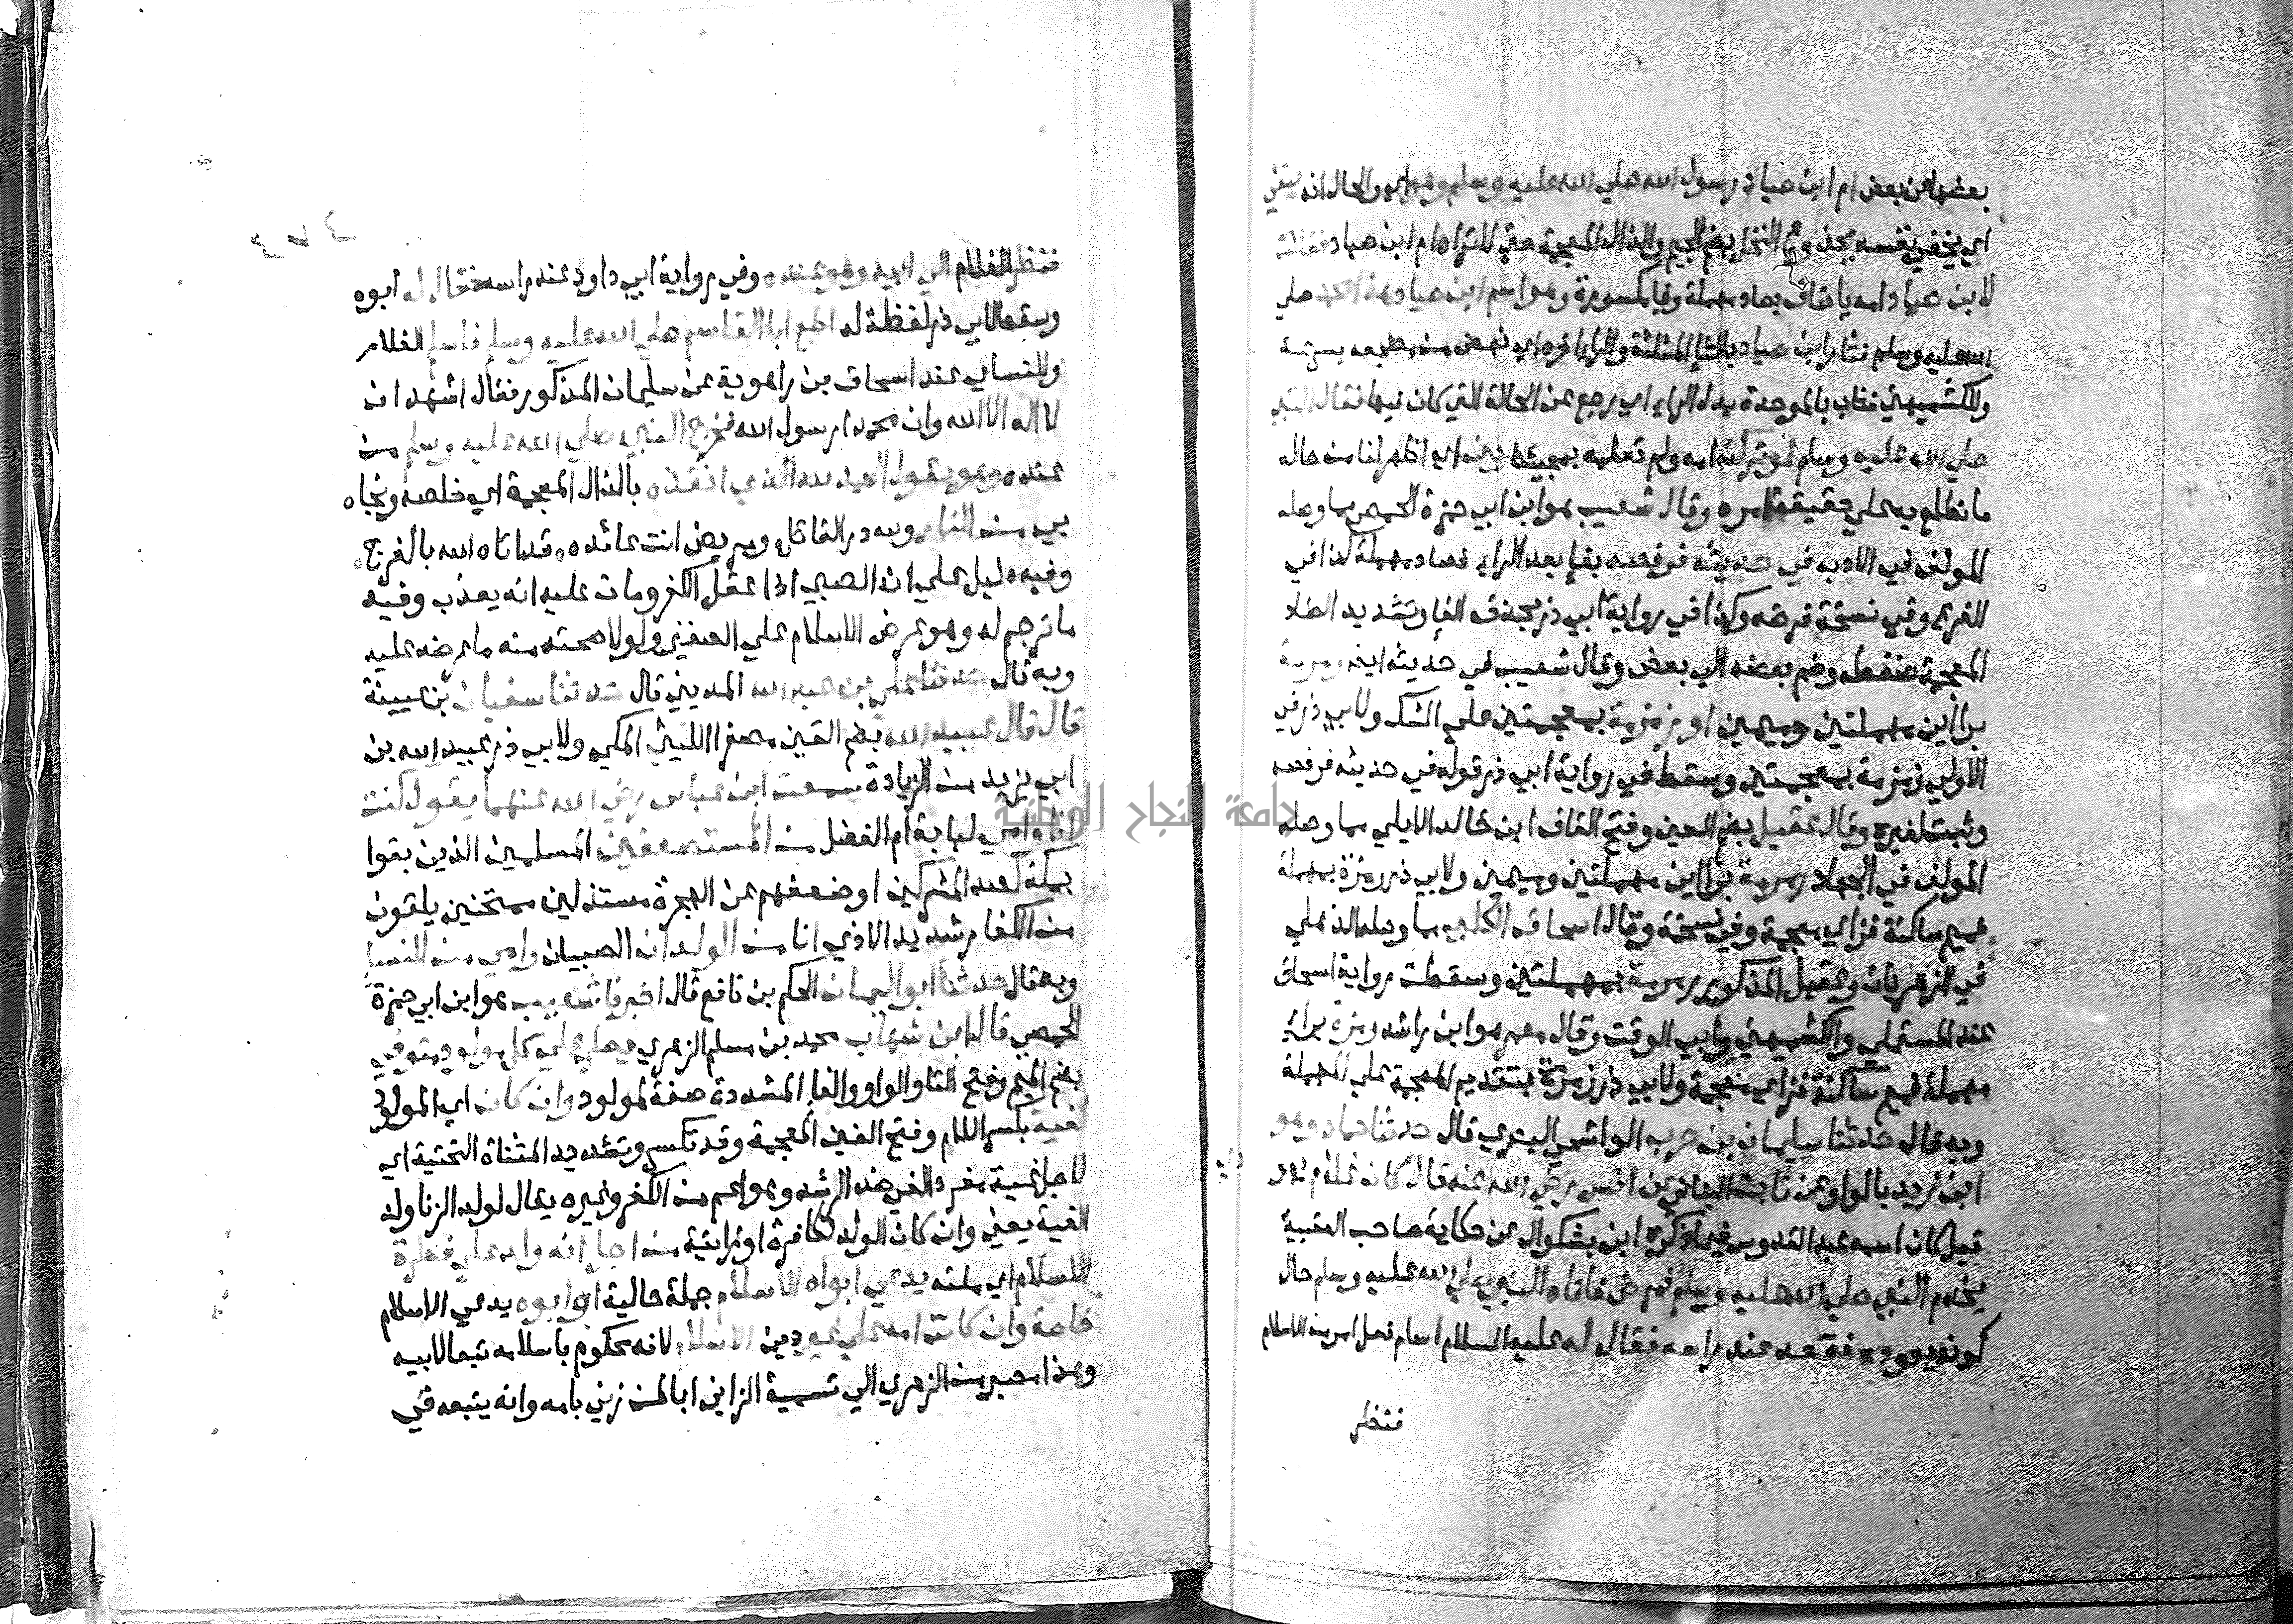 بعضها عن بعض ام ابن صياد رسول الله صلي الله عليه وسلم وهو اي والحال انه يتقي
اي يخفي نفسه بجذوع النخل بضم الجيم والذال المعجمة حتي لا تراه ام ابن صياد فقالت
لابن صياد امه يا صاف بصاد مهملة وفا مكسورة وهو اسم ابن صياد هذا محمد صلي
الله عليه وسلم فثار ابن صياد بالثا المثلثة والرا اخره اي نهض من مضجعه بسرعة
وللكشميهني فثاب بالموحدة بدل الراء اي رجع عن الحالة التي كان فيها فقال النبي
صلي الله عليه وسلم لو تركته امه ولم تعلمه بمجيئنا بين اي اظهر لنا من حاله
ما نطلع به علي حقيقة امره وقال شعيب هو ابن ابي حمزة الحمصي مما وصله
المولف في الادب في حديثه فرفصه بفا بعد الراء فصاد مهملة كذا في
الفرع وفي نسخة فرضه وكذا في رواية ابي ذر بحذف الفا وتشديد الضاد
المعجمة ضغطه وضم بعضه الي بعض وقال شعيب في حديثه ايضا رمرمة
براأين مهملتين وميمين او زمزمة بمعجمتين علي الشك ولابي ذر في
الاولي زمزمة بمعجمتين وسقط في رواية ابي ذر قوله في حديثه فرفصه
وثبت لغيره وقال عقيل بضم العين وفتح القاف ابن خالد الايلي مما وصله
المولف في الجهاد رمرمة براأين مهملتين وميمين ولابي ذر رمزة بمهملة
فميم ساكنة فزاي معجمة وفي نسخة وقال اسحاق الكلبي مما وصله الذهلي
في الزهريات وعقيل المذكور رمرمة بمهملتين وسقطت رواية اسحاق
عند المستملي والكشميهني وابي الوقت وقال معمر هو ابن راشد رمزة براء
مهملة فميم ساكنة فزاي معجمة ولابي ذر زمرة بتقديم المعجمة علي المهملة
وبه قال حدثنا سليمان بن حرب الواشحي البصري قال حدثنا حماد وهو
ابن زيد بالواو عن ثابت البناني عن انس رضي الله عنه قال كان غلام يهودي
قيل كان اسمه عبد القدوس فيما ذكره ابن بشكوال عن حكاية صاحب العتبية
يخدم النبي صلي الله عليه وسلم فمرض فاتاه النبي صلي الله عليه وسلم حال
كونه يعوده فقعد عند راسه فقال له عليه السلام اسلم فعل امر من الاسلام
فنظر
فنظر الغلام الي ابيه وهو عنده وفي رواية ابي داود عند راسه فقال له ابوه
وسقط لابي ذر لفظة له اطع ابا القاسم صلي الله عليه وسلم فاسلم الغلام
وللنساي عند اسحاق بن راهوية عن سليمان المذكور فقال اشهد ان
لا اله الا الله وان محمدا رسول الله فخرج النبي صلي الله عليه وسلم من
عنده وهو يقول الحمد لله الذي انقذه بالذال المعجمة اي خلصه ونجاه
بي من النار ولله در القائل ومريض انت عائده قد اتاه الله بالفرج
وفيه دليل علي ان الصبي اذا عقل الكفر ومات عليه انه يعذب وفيه
ما ترجم له وهو عرض الاسلام علي الصغير ولولا صحته منه ما عرضه عليه
وبه قال حدثنا علي بن عبد الله المديني قال حدثنا سفيان بن عيينة
قال قال عبيد الله بضم العين مصغرا الليثي المكي ولابي ذر عبيد الله بن
ابي يزيد من الزيادة سمعت ابن عباس رضي الله عنهما يقول كنت
انا وامي لبابة ام الفضل من المستضعفين المسلمين الذين بقوا
بمكة لصد المشركين او ضعفهم عن الهجرة مستذلين ممتحنين يلقون
من الكفار شديد الاذي انا من الولدان الصبيان وامي من النسا
وبه قال حدثنا ابو اليمان الحكم بن نافع قال اخبرنا شعيب هو ابن ابي حمزة
الحمصي قال ابن شهاب محمد بن مسلم الزهري يصلي علي كل مولود متوفي
بضم الميم وفتح التا والواو والفا المشددة صفة لمولود وان كان اي المولود
لغية بكسر اللام وفتح الغين المعجمة وقد تكسر وتشديد المثناة التحتية اي
لاجل غية مفرد الغي ضد الرشد وهو اعم من الكفر وغيره يقال لولد الزنا ولد
الغية يعني وان كان الولد لكافرة او زانية من اجل انه ولد علي فطرة
الاسلام اي ملته يدعي ابواه الاسلام جملة حالية او ابوه يدعي الاسلام
خاصة وان كانت امه علي غير دين الاسلام لانه محكوم باسلامه تبعا لابيه
وهذا مصير من الزهري الي تسمية الزاني ابا لمن زني بامه وانه يتبعه في
جامعة النجاح الوطنية